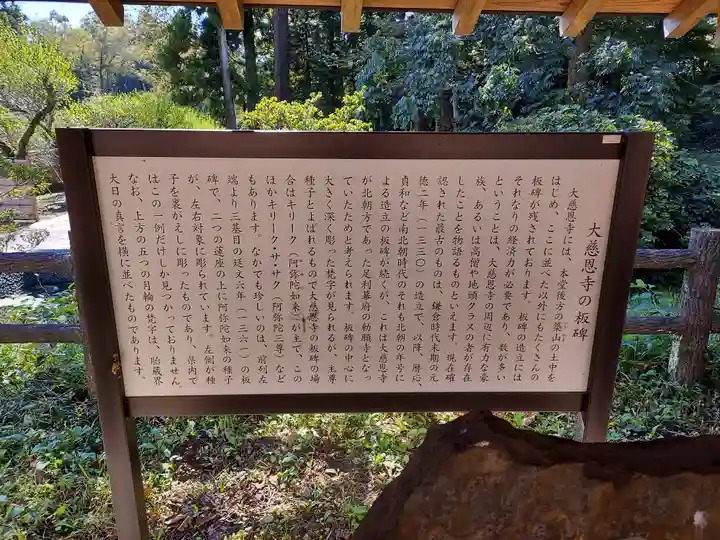 大慈恩寺の板碑
大慈恩寺には、本堂後方の築山の土中を
はじめ、ここに並べた以外にもたくさんの
板碑が残されております。板碑の造立には
それなりの経済力が必要であり、数が多い
ということは、大慈恩寺の周辺に有力な豪
族、あるいは高僧や地頭クラスの者が存在
したことを物語るものといえます。現在確
認された最古のものは、鎌倉時代末期の元
徳二年(一三三〇)の造立で、以降、暦応、
貞和など南北朝時代のそれも北朝の年号に
よる造立の板碑が続くが、これは大慈恩寺
が北朝方であった足利幕府の勅願寺となっ
ていたためと考えられます。板碑の中心に
大きく深く彫った梵字が見られるが、主尊
種子とよばれるもので大慈恩寺の板碑の場
合はキリーク(阿弥陀如来)が主で、この
ほかキリーク・サ・サク(阿弥陀三尊)など
もあります。なかでも珍しいのは、前列左
端より三基目の延文六年(一三六一)の板
碑で、二つの蓮座の上に阿弥陀如来の種子
が、左右対象に彫られています。左側が種
子を裏がえしに彫ったものであり、県内で
はこの一例だけしか見つかっておりません。
なお、上方の五つの月輪の梵字は、胎蔵界
大日の真言を横に並べたものであります。